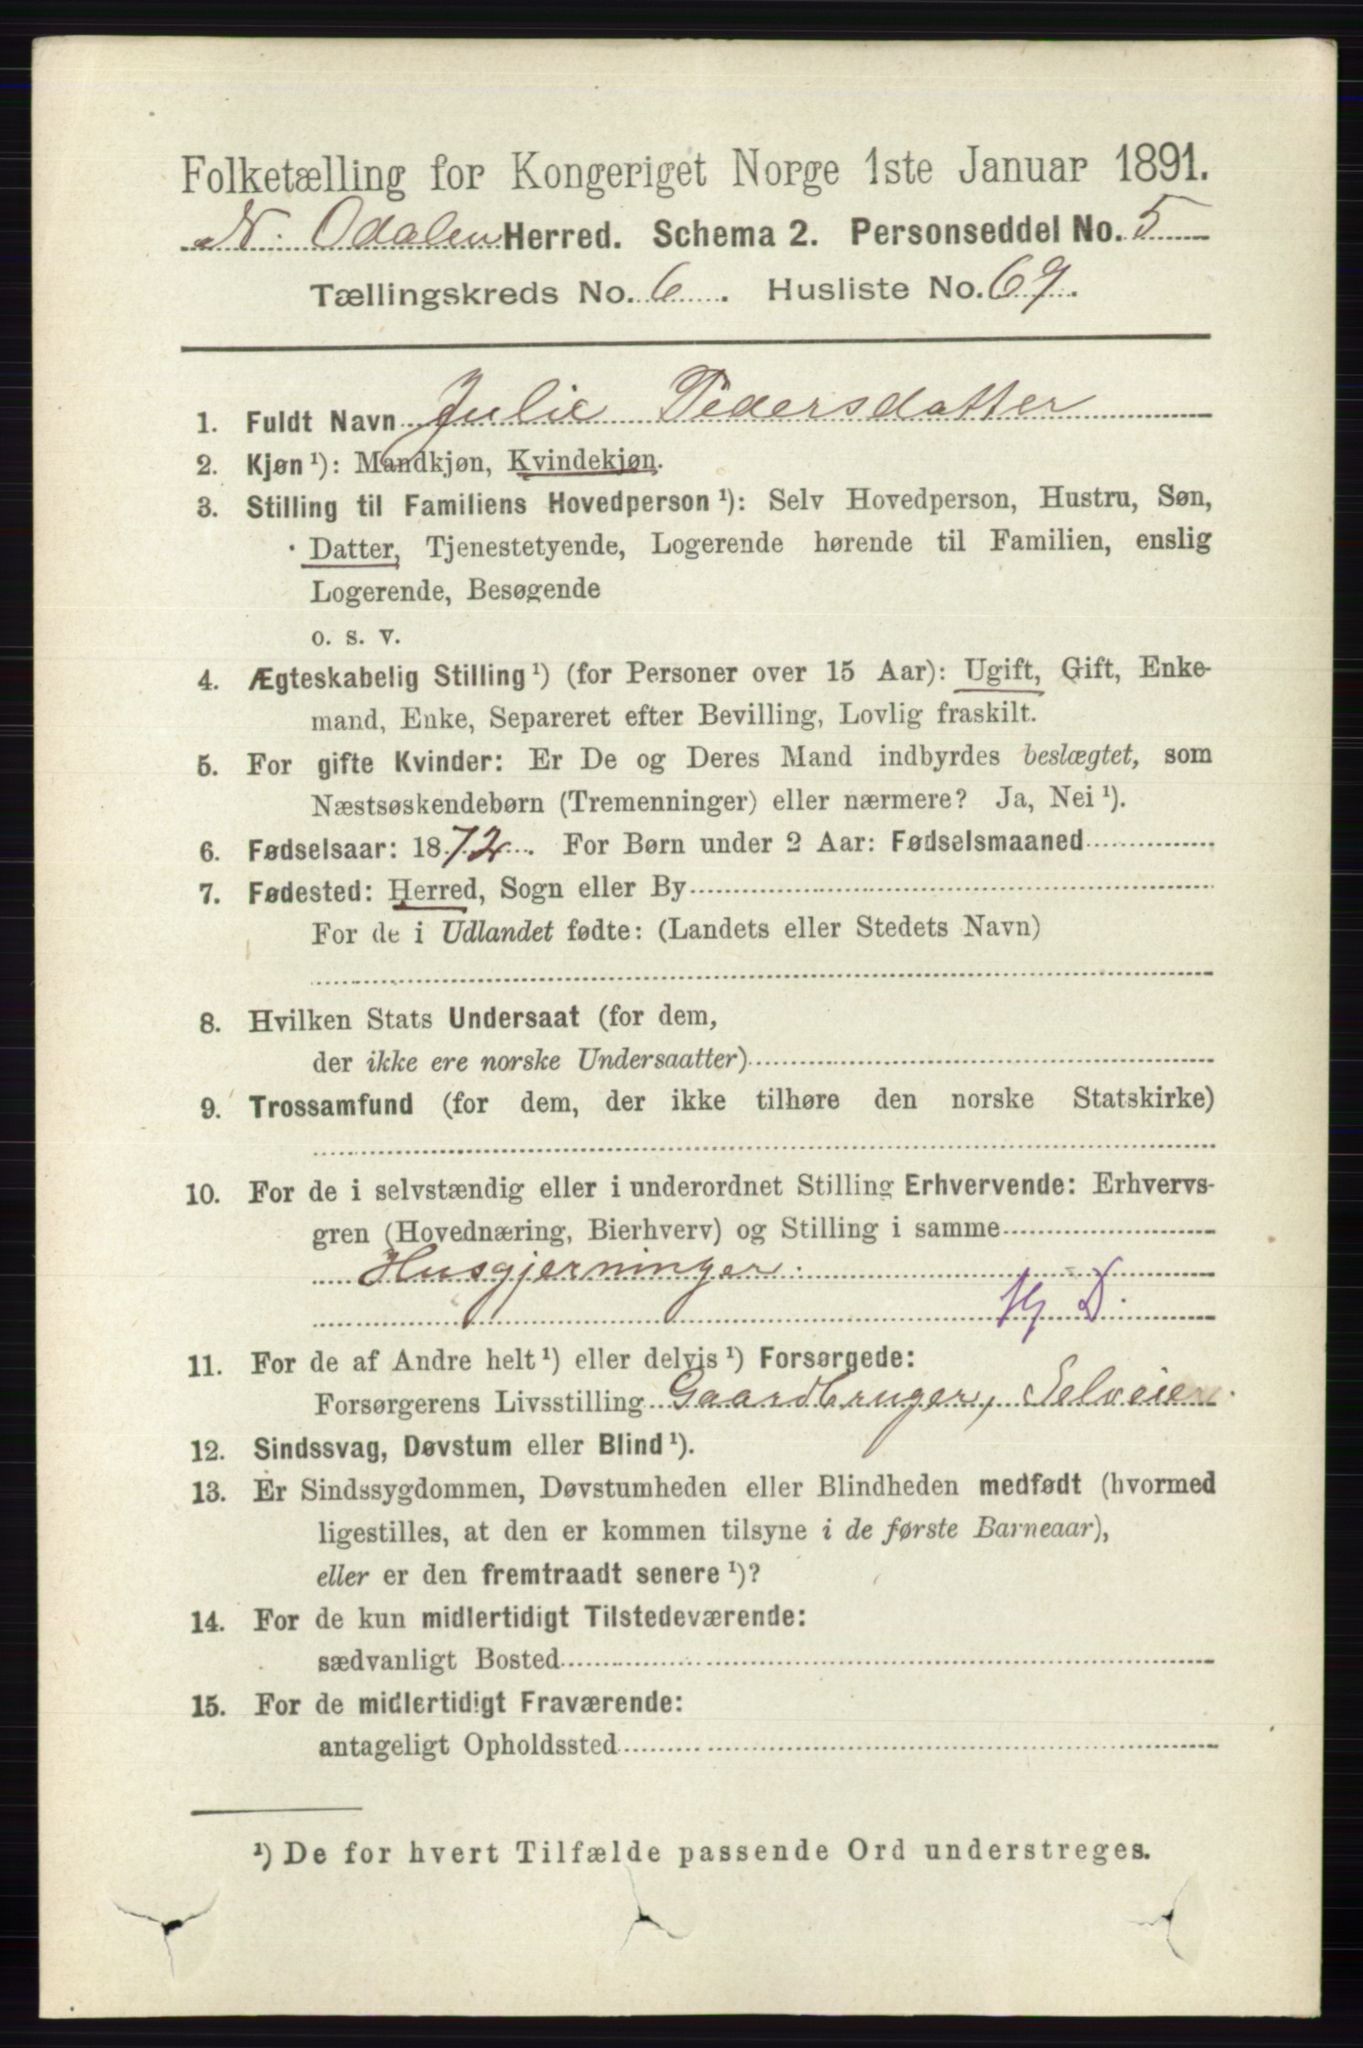 Folketælling for Kongeriget Norge 1ste Januar 1891.
N. Odalen Herred. Schema 2. Personseddel No. 5
Tællingskreds No. 6. Husliste No. 69.
1. Fuldt Navn Julie Pedersdatter
2. Kjøn¹): Mandkjøn, Kvindekjøn.
3. Stilling til Familiens Hovedperson¹): Selv Hovedperson, Hustru, Søn,
Datter, Tjenestetyende, Logerende hørende til Familien, enslig
Logerende, Besøgende
o. s. v.
4. Ægteskabelig Stilling¹) (for Personer over 15 Aar): Ugift, Gift, Enke-
mand, Enke, Separeret efter Bevilling, Lovlig fraskilt.
5. For gifte Kvinder: Er De og Deres Mand indbyrdes beslægtet, som
Næstsøskendebørn (Tremenninger) eller nærmere? Ja, Nei¹).
6. Fødselsaar: 1872. For Børn under 2 Aar: Fødselsmaaned
7. Fødested: Herred, Sogn eller By
For de i Udlandet fødte: (Landets eller Stedets Navn)
8. Hvilken Stats Undersaat (for dem,
der ikke ere norske Undersaatter)
9. Trossamfund (for dem, der ikke tilhøre den norske Statskirke)
10. For de i selvstændig eller i underordnet Stilling Erhvervende: Erhvervs-
gren (Hovednæring, Bierhverv) og Stilling i samme
Husgjerninger.
Hg D.
11. For de af Andre helt¹) eller delvis¹) Forsørgede:
Forsørgerens Livsstilling Gaardbruger, Selveier.
12. Sindssvag, Døvstum eller Blind¹).
13. Er Sindssygdommen, Døvstumheden eller Blindheden medfødt (hvormed
ligestilles, at den er kommen tilsyne i de første Barneaar),
eller er den fremtraadt senere¹)?
14. For de kun midlertidigt Tilstedeværende:
sædvanligt Bosted
15. For de midlertidigt Fraværende:
antageligt Opholdssted
¹) De for hvert Tilfælde passende Ord understreges.